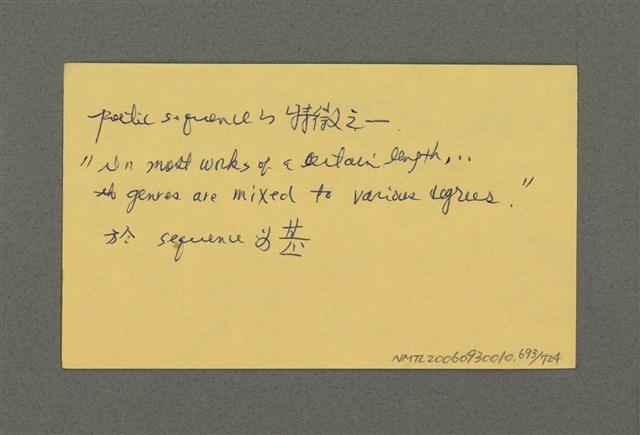 Poetic sequence 的特徵之一
"In most works of a certain length,...
genres are mixed to various degrees."
於 sequence 為甚
NMTL20060930010.693/724